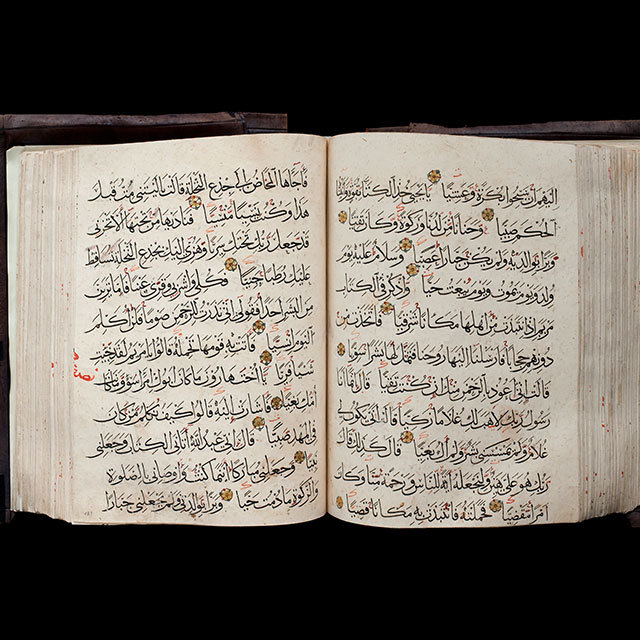 اليهم ان سبحوا بكرة وعشيا يا يحيى خذ الكتاب بقوة واتيناه
الحكم صبيا وحنانا من لدنا وزكوة وكان تقيا
وبرا بوالديه ولم يكن جبارا عصيا وسلام عليه يوم
ولد ويوم يموت ويوم يبعث حيا واذكر في الكتاب
مريم اذ انتبذت من اهلها مكانا شرقيا فاتخذت من
دونهم حجابا فارسلنا اليها روحنا فتمثل لها بشرا سويا
قالت اني اعوذ بالرحمن منك ان كنت تقيا قال انما انا
رسول ربك لاهب لك غلاما زكيا قالت انى يكون لي
غلام ولم يمسسني بشر ولم اك بغيا قال كذلك قال
ربك هو علي هين ولنجعله اية للناس ورحمة منا وكان
امرا مقضيا فحملته فانتبذت به مكانا قصيا
فاجاءها المخاض الى جذع النخلة قالت يا ليتني مت قبل
هذا وكنت نسيا منسيا فناداها من تحتها الا تحزني
قد جعل ربك تحتك سريا وهزي اليك بجذع النخلة تساقط
عليك رطبا جنيا فكلي واشربي وقري عينا فاما ترين
من البشر احدا فقولي اني نذرت للرحمن صوما فلن اكلم
اليوم انسيا فاتت به قومها تحمله قالوا يا مريم لقد جئت
شيئا فريا يا اخت هرون ما كان ابوك امرا سوء وما كانت
امك بغيا فاشارت اليه قالوا كيف نكلم من كان
في المهد صبيا قال اني عبد الله اتاني الكتاب وجعلني
نبيا وجعلني مباركا اينما كنت واوصاني بالصلوة
والزكوة ما دمت حيا وبرا بوالدتي ولم يجعلني جبارا